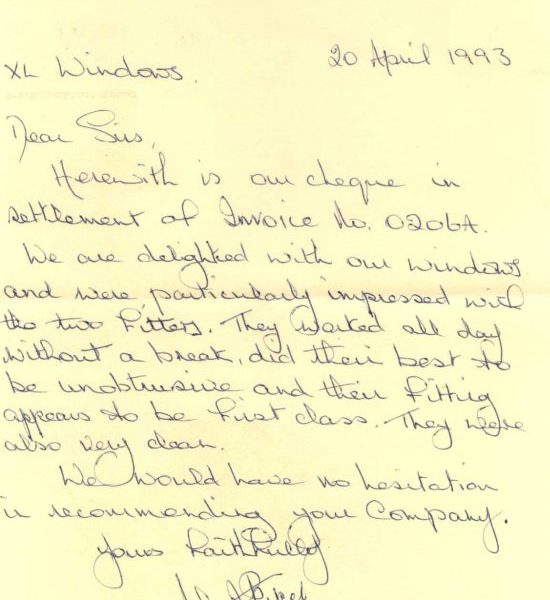 20 April 1993
XL Windows.
Dear Sirs,
Herewith is our cheque in
settlement of Invoice No. 0206A.
We are delighted with our windows
and were particularly impressed with
the two fitters. They worked all day
without a break, did their best to
be unobtrusive and their fitting
appears to be first class. They were
also very clean.
We would have no hesitation
in recommending your Company.
yours faithfully